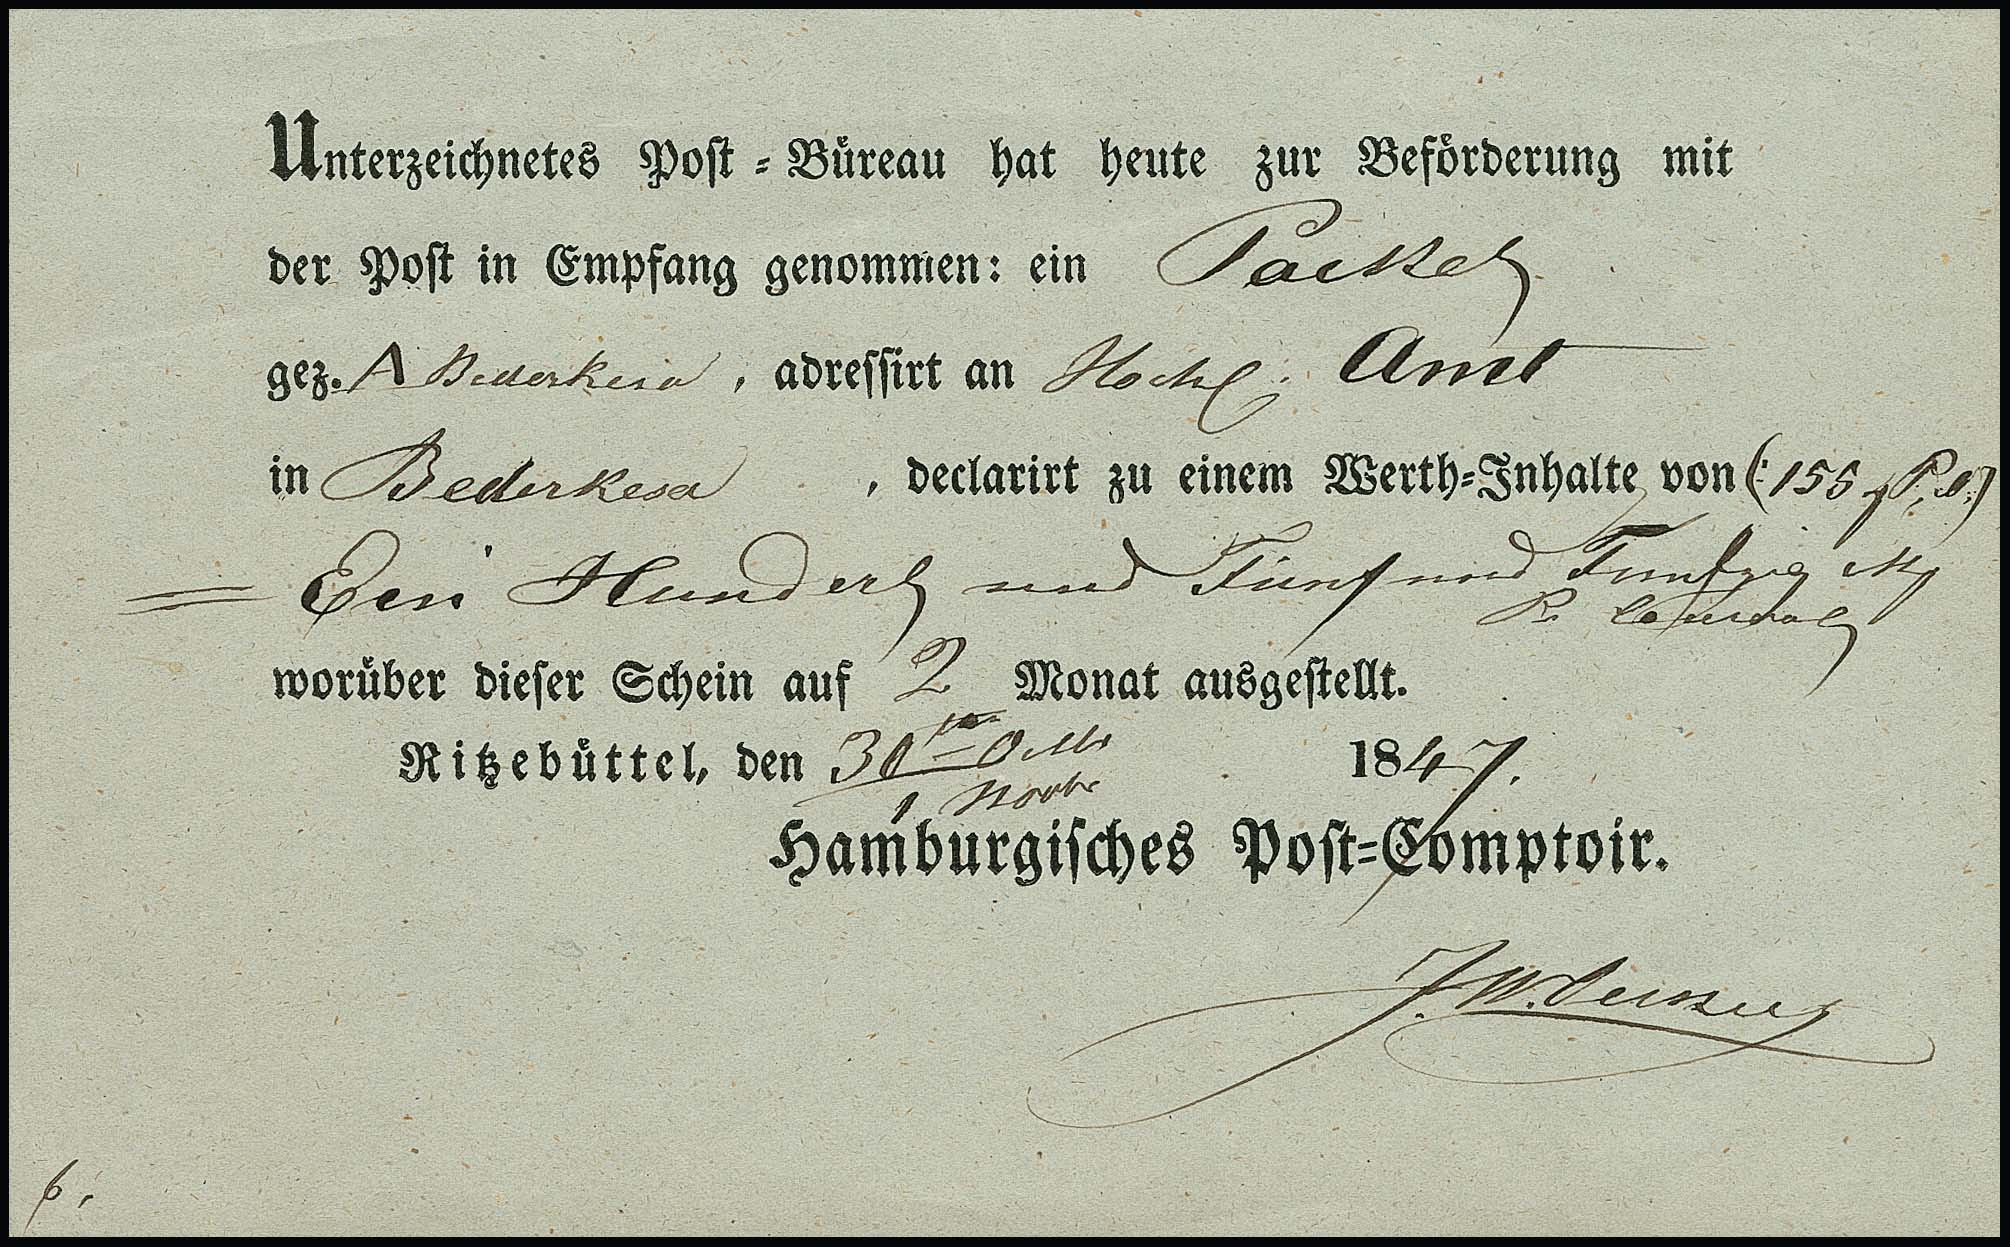 Unterzeichnetes Post-Büreau hat heute zur Beförderung mit
der Post in Empfang genommen: ein Packet
gez. A Bederkesa, adressirt an Hochl: Amt
in Bederkesa, declarirt zu einem Werth-Inhalte von (: 155
Ein Hundert und Fünf und Funfzig
worüber dieser Schein auf 2 Monat ausgestellt.
Ritzebüttel, den 30 Octbr 1847.
1 Novbr
Hamburgisches Post-Comptoir.
J. W.
6.